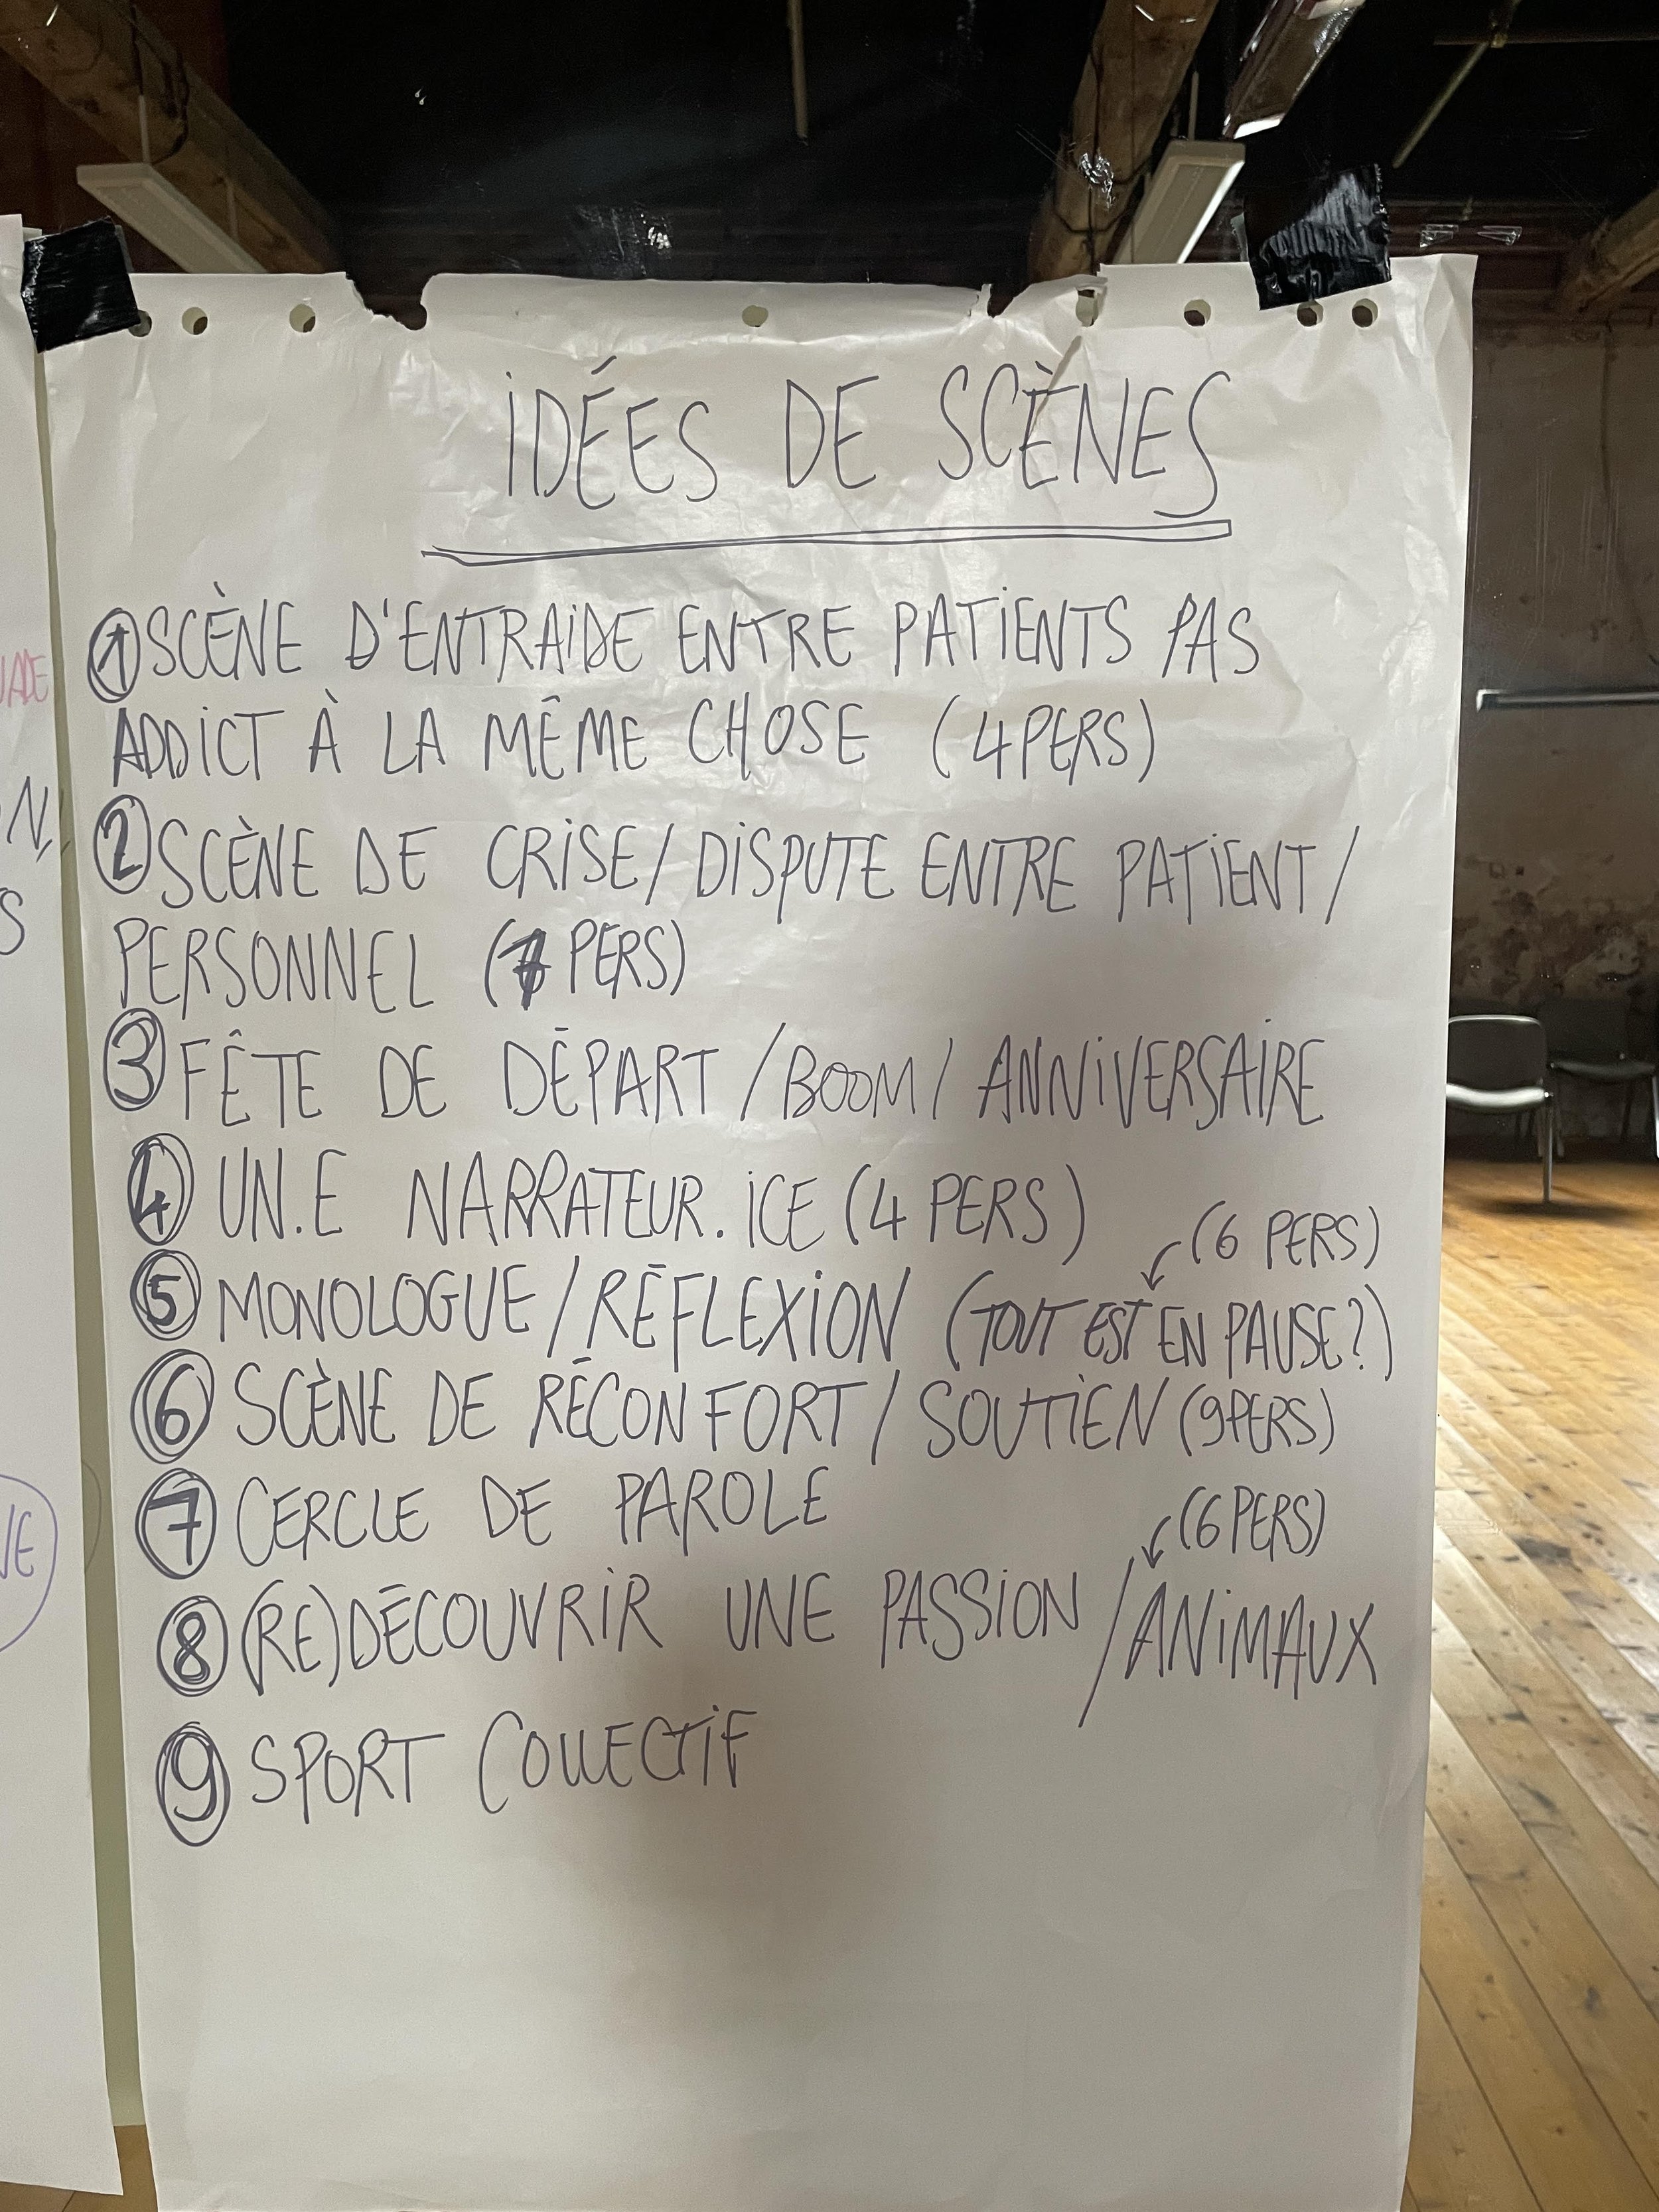 IDÉES DE SCÈNES
① SCÈNE D'ENTRAIDE ENTRE PATIENTS PAS
ADDICT À LA MÊME CHOSE (4 PERS)
② SCÈNE DE CRISE / DISPUTE ENTRE PATIENT /
PERSONNEL (7 PERS)
③ FÊTE DE DÉPART / BOOM / ANNIVERSAIRE
④ UN.E NARRATEUR.ICE (4 PERS)
(6 PERS)
⑤ MONOLOGUE / RÉFLEXION (TOUT EST EN PAUSE?)
⑥ SCÈNE DE RÉCONFORT / SOUTIEN (9 PERS)
⑦ CERCLE DE PAROLE
(6 PERS)
⑧ (RE)DÉCOUVRIR UNE PASSION / ANIMAUX
⑨ SPORT COLLECTIF